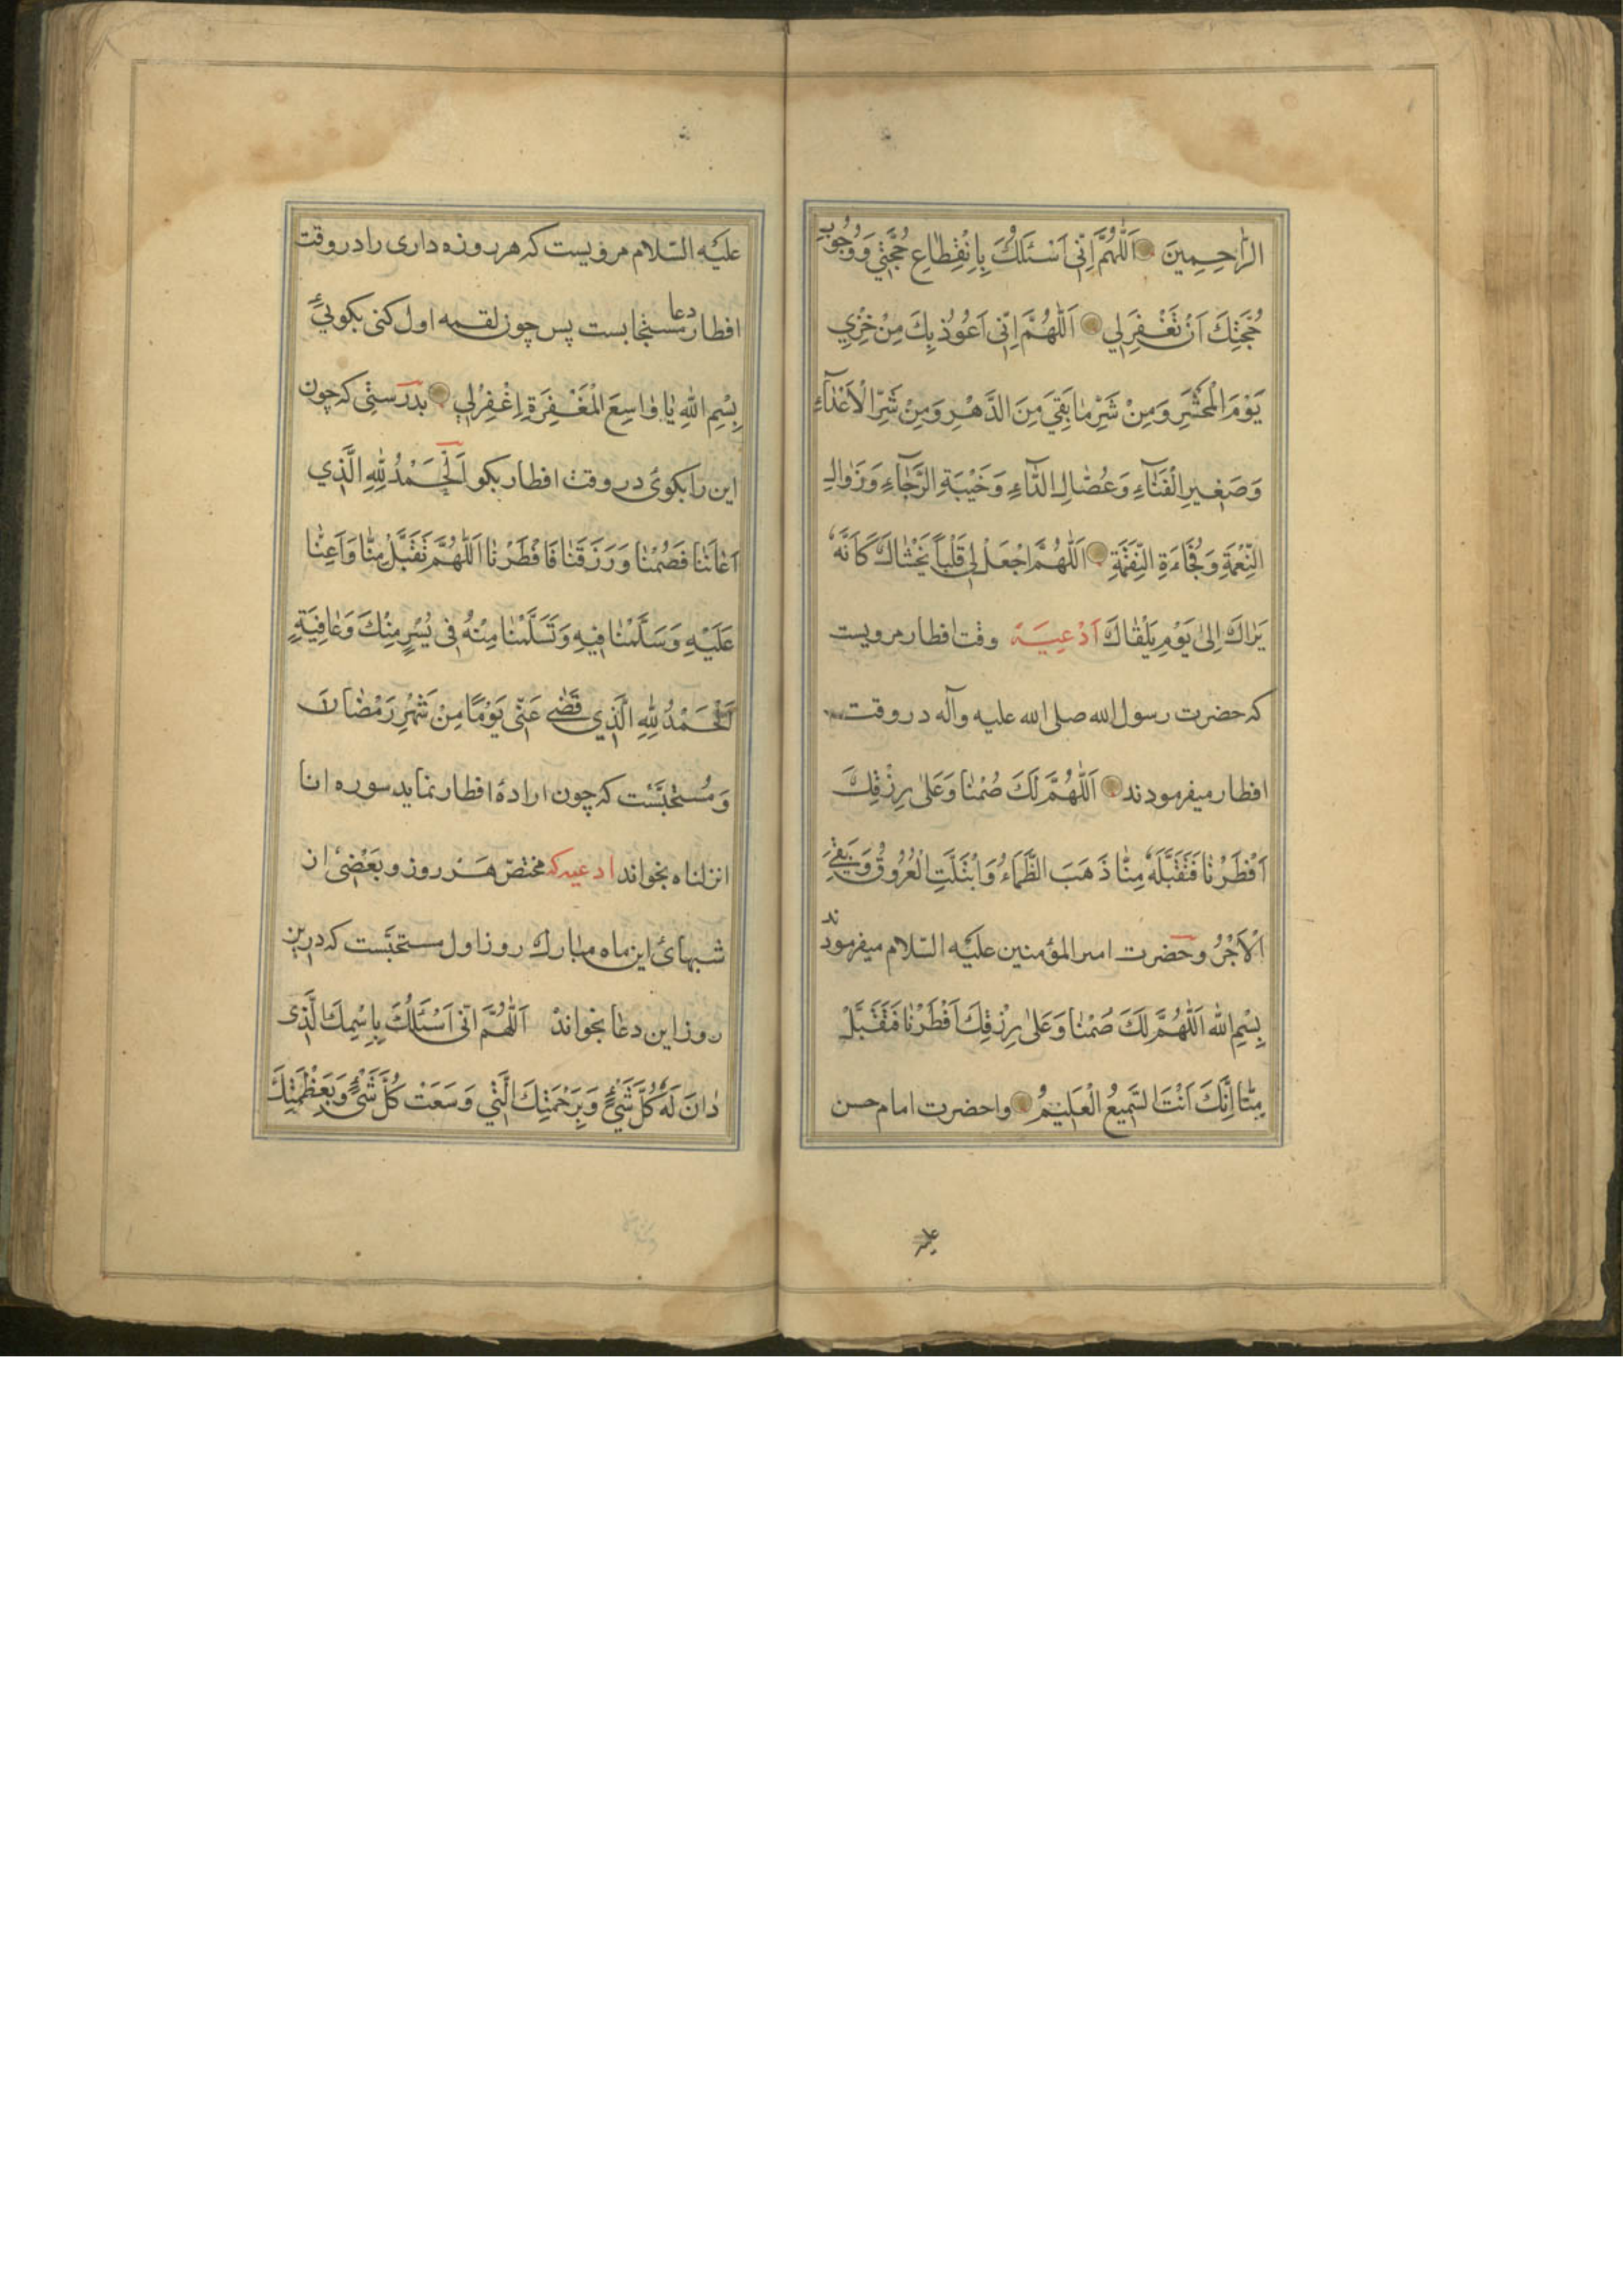 الرَّاحِمِينَ اَللّٰهُمَّ اِنّى اَسْئَلُكَ بِاِنْقِطٰاعِ حُجَّتِي وَوُجُوبِ
حُجَّتِكَ اَنْ تَغْفِرَلِي اَللّٰهُمَّ اِنّى اَعُوُذُبِكَ مِنْ خِزْيِ
يَوْمَ الْمَحْشَرِ وَمِنْ شَرِّ مٰا بَقِيَ مِنَ الدَّهْرِ وَمِنْ شَرِّ الْاَعْدٰآءِ
وَصَغِيرِ الْفَنٰآءِ وَعُضٰالِ الدّٰآءِ وَخَيْبَةِ الرَّجٰآءِ وَزَوٰالِ
النِّعْمَةِ وَفُجَاءَةِ النِّقْمَةِ اَللّٰهُمَّ اجْعَلْ لِى قَلْباً يَخْشٰاكَ كَاَنَّهُ
يَرٰاكَ اِلىٰ يَوْمِ يَلْقٰاكَ اَدْعِيَه وقت افطار مرويست
كه حضرت رسول الله صلى الله عليه وآله در وقت
افطار ميفرمودند اَللّٰهُمَّ لَكَ صُمْنٰا وَعَلىٰ رِزْقِكَ
اَفْطَرْنٰا فَتَقَبَّلَهُ مِنّٰا ذَهَبَ الظَّمَاءُ وَابْتَلَّتِ الْعُرُوُقُ وَبَقِيَ
اْلاَجْرُ وحَضرت امير المؤمنين عليَه السّلام ميفرمودند
بِسْمِ الله اَللّٰهُمَّ لَكَ صُمْنٰا وَعَلىٰ رِزْقِكَ اَفْطَرْنٰا فَتَقَبَّلْ
مِنّٰا اِنَّكَ اَنْتَ السَّمِيعُ الْعَلِيمُ واحضرت امام حسن
عليَه السّلام مرويست كه هر روزه دارى را در وقت
افطار دعا مستجابست پس چون لقمه اول كنى بكوئى
بِسْمِ اللهِ يٰا وٰاسِعَ الْمَغْفِرَةِ اِغْفِرْلِي بدرستى كه چون
اين را بكوئ در وقت افطار بكو اَلْحَمْدُ لِلّٰهِ الَّذِي
اَعٰانَنٰا فَصُمْنٰا وَرَزَقَنٰا فَاَفْطَرْنٰا اَللّٰهُمَّ تَقَبَّلْ مِنّٰا وَاَعِنّٰا
عَلَيْهِ وَسَلِّمْنٰا فِيهِ وَتَسَلَّمْنٰا مِنْهُ فِى يُسْرٍ مِنْكَ وَعٰافِيَةٍ
اَلْحَمْدُ لِلّٰهِ الَّذِي قَضٰى عَنّى يَوْمًا مِنْ شَهْرِ رَمْضٰانَ
وَمُستحبَّست كه چون ارادهٔ افطار نمايد سوره انا
انزلناه بخواند ادعيه كه مختصّ هَر روز و بَعْضِىْ از
شبهاىْ اين ماه مبارك روز اول مستحبّست كه درين
روز اين دعٰا بخواند اَللّٰهُمَّ انّى اَسْئَلُكَ بِاِسْمِكَ الَّذِى
دٰانَ لَهُ كُلُّ شَيْءٍ وَبِرَحْمَتِكَ الَّتِي وَسَعَتْ كُلَّ شَيْءٍ وَبِعَظْمَتِكَ